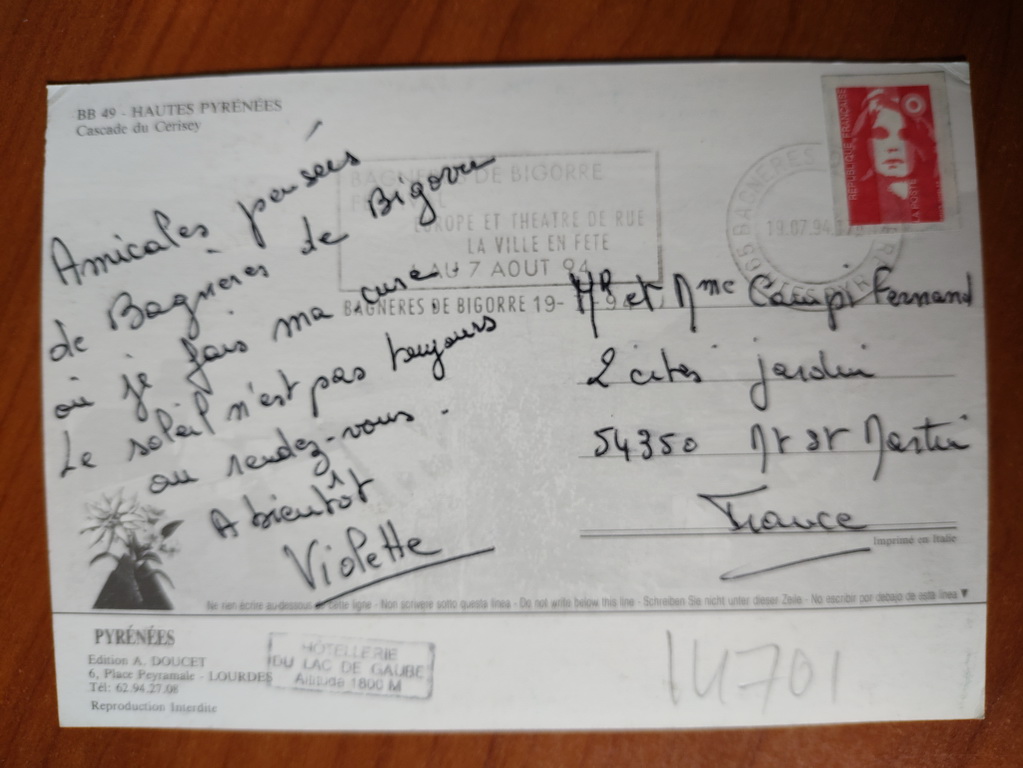 BB 49 - HAUTES PYRÉNÉES
Cascade du Cerisey
Amicales pensées
de Bagnères de Bigorre
où je fais ma cure.
Le soleil n'est pas toujours
au rendez-vous.
A bientôt
Violette
BAGNERES DE BIGORRE
EUROPE ET THEATRE DE RUE
LA VILLE EN FETE
AU 7 AOUT 94
BAGNERES DE BIGORRE 19-
65 BAGNERES
19.07.94
REPUBLIQUE FRANÇAISE
LA POSTE
Mr et Mme Campi Fernand
2 cités jardin
54350 Mt St Martin
France
Imprimé en Italie
Ne rien écrire au-dessous de cette ligne - Non scrivere sotto questa linea - Do not write below this line - Schreiben Sie nicht unter dieser Zeile - No escribir por debajo de esta línea ▼
PYRÉNÉES
Edition A. DOUCET
6, Place Peyramale - LOURDES
Tél: 62.94.27.08
Reproduction Interdite
HÔTELLERIE
DU LAC DE GAUBE
Altitude 1800 M
14701